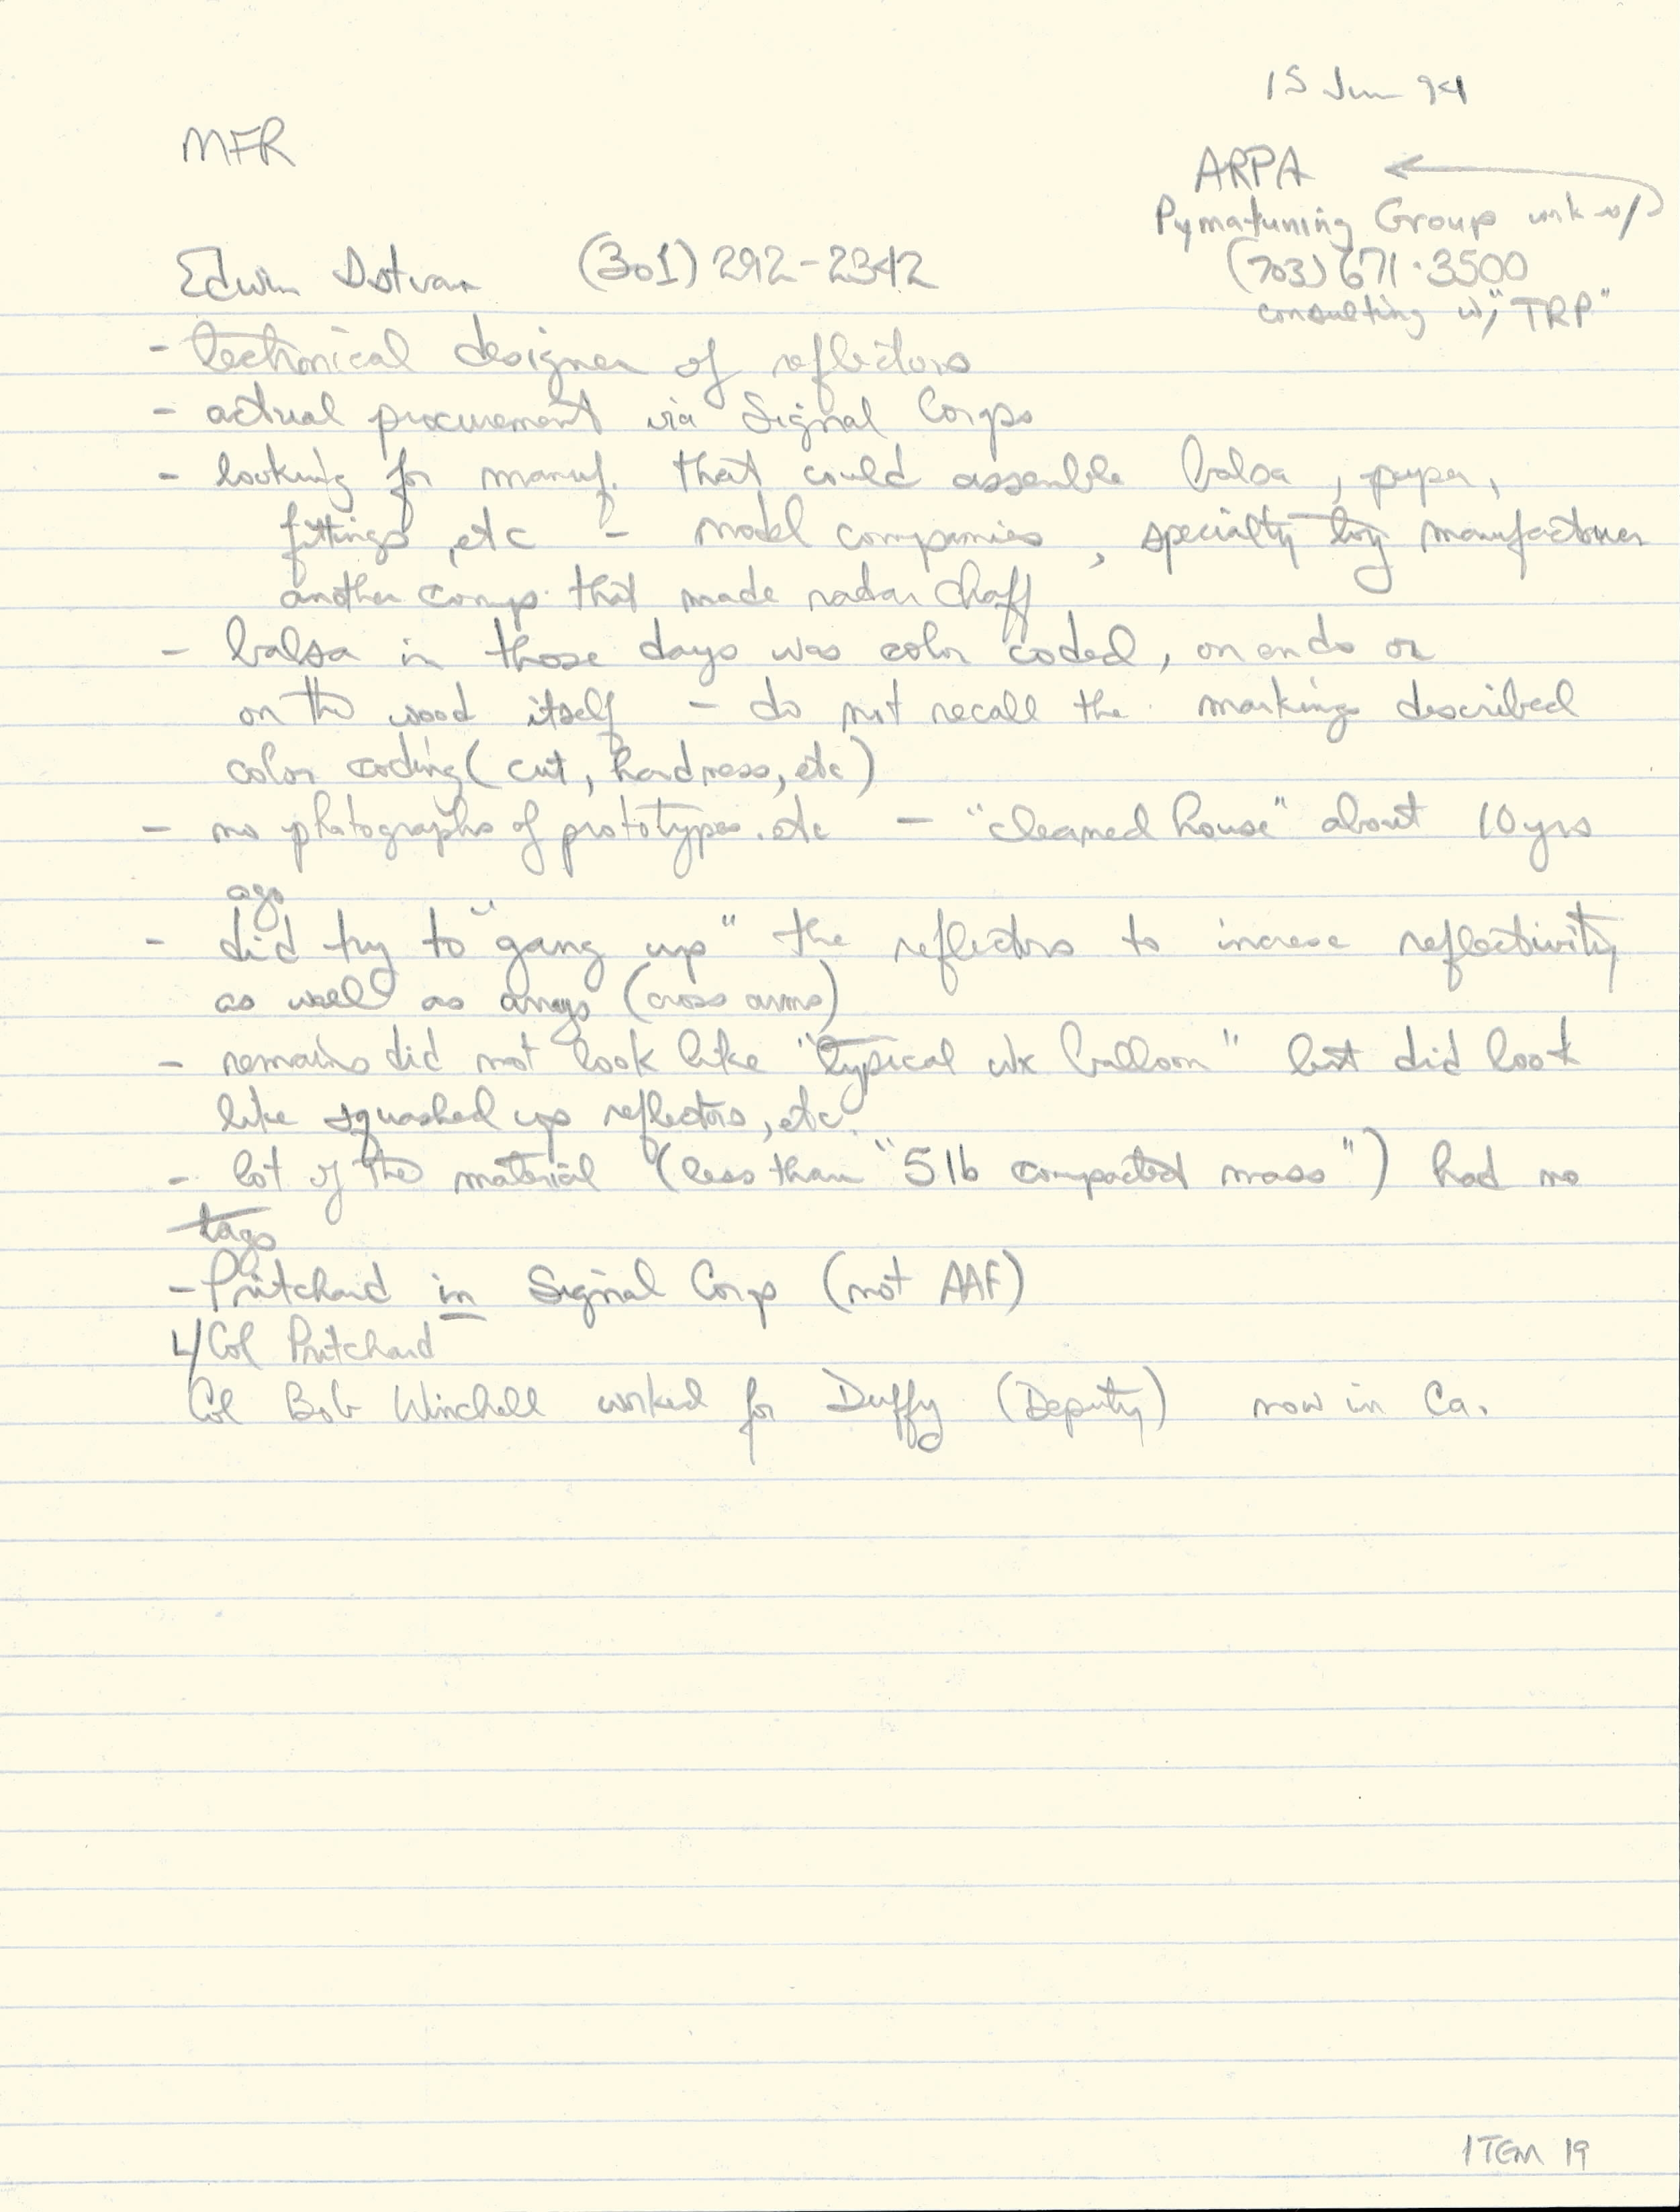 15 Jun 94
MFR
ARPA
Pymatuning Group work w/
Edwin Istvan (301) 292-2342
(703) 671-3500
consulting w/ "TRP"
- technical designer of reflectors
- actual procurement via Signal Corps
- looking for manuf. that could assemble balsa, paper,
fittings, etc - model companies, specialty toy manufacturer
another comp. that made radar chaff
- balsa in those days was color coded, on ends or
on the wood itself - do not recall the markings described
color coding (cut, hardness, etc)
- no photographs of prototypes. etc - "cleaned house" about 10 yrs
ago
- did try to "gang up" the reflectors to increse reflectivity
as well as arrays (cross arms)
- remains did not look like "typical wx balloon" but did look
like squashed up reflectors, etc.
- lot of the material (less than "5 lb compacted mass") had no
tags
- Pritchard in Signal Corp (not AAF)
L/Col Pritchard
Col Bob Winchell worked for Duffy (Deputy) now in Ca.
ITEM 19